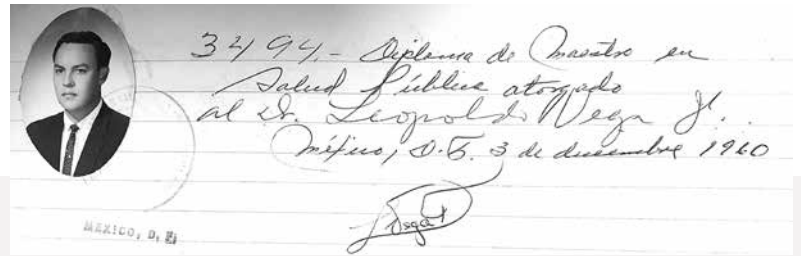 3494.- Diploma de Maestro en
Salud Pública otorgado
al Dr. Leopoldo Vega Jr.
México, D.F. 3 de diciembre 1960
LVegaF
MEXICO, D. F.